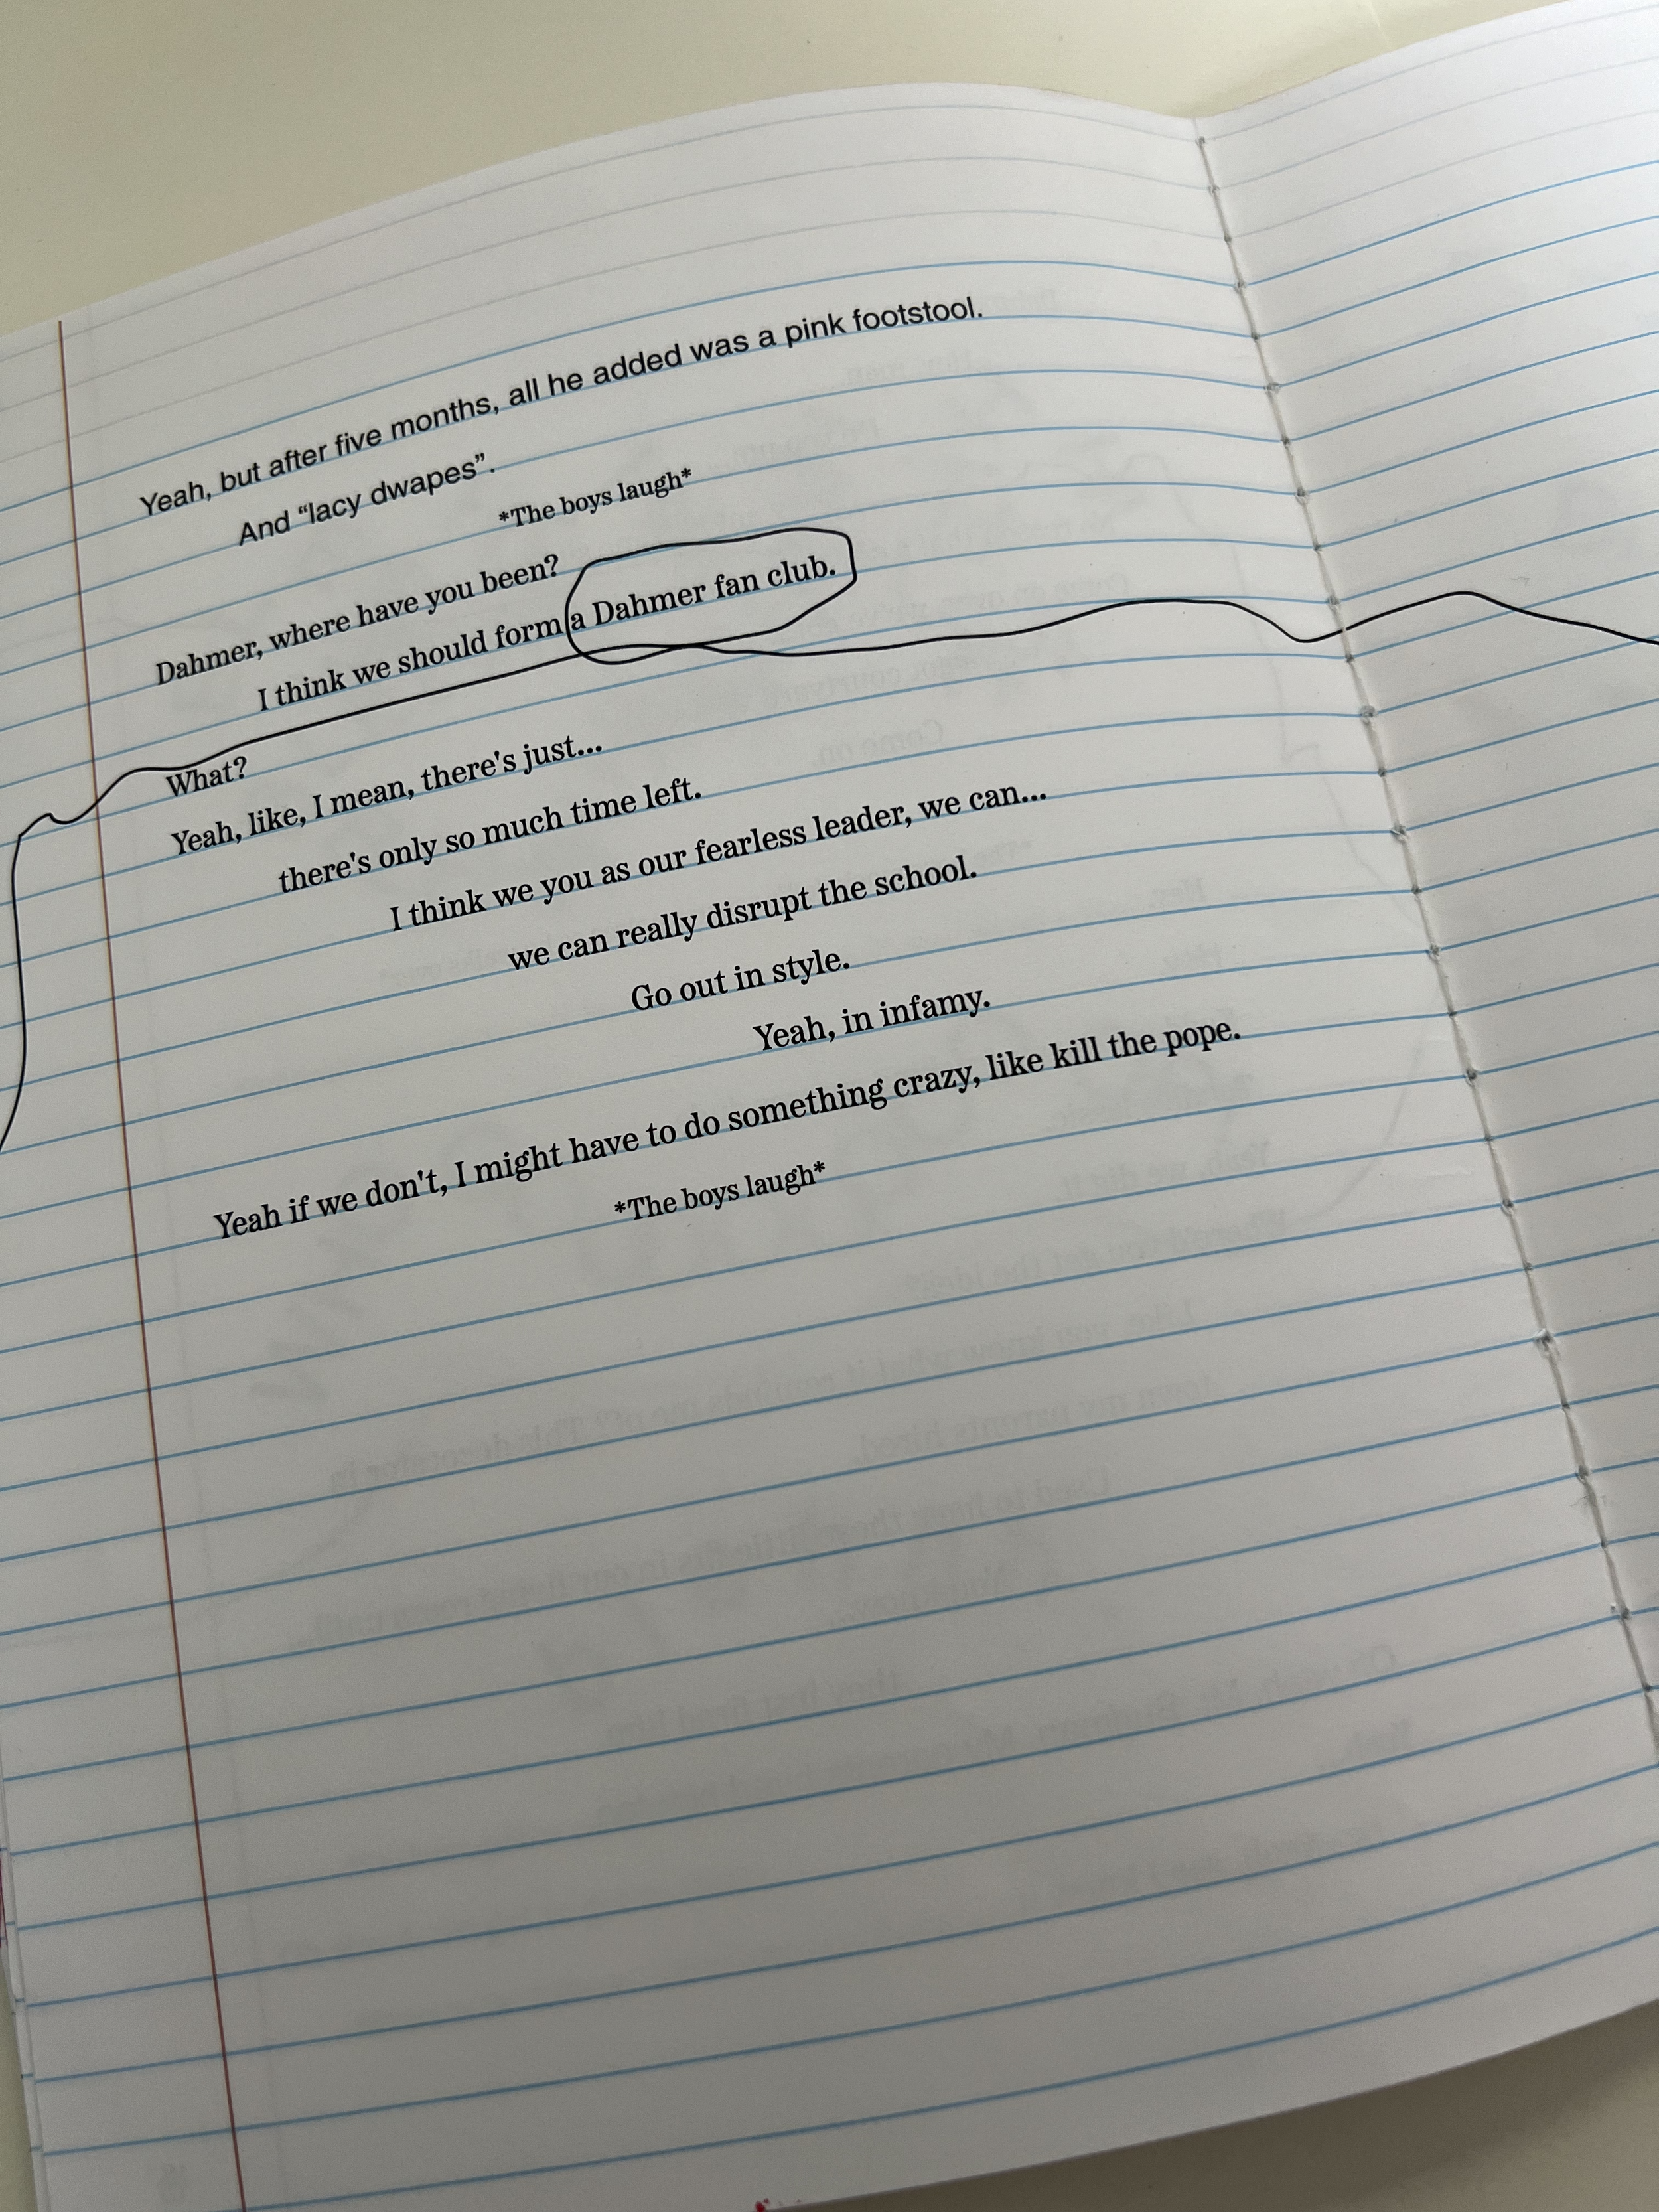 Yeah, but after five months, all he added was a pink footstool.
And “lacy dwapes”.
*The boys laugh*
Dahmer, where have you been?
I think we should form a Dahmer fan club.
What?
Yeah, like, I mean, there's just...
there's only so much time left.
I think we you as our fearless leader, we can...
we can really disrupt the school.
Go out in style.
Yeah, in infamy.
Yeah if we don't, I might have to do something crazy, like kill the pope.
*The boys laugh*